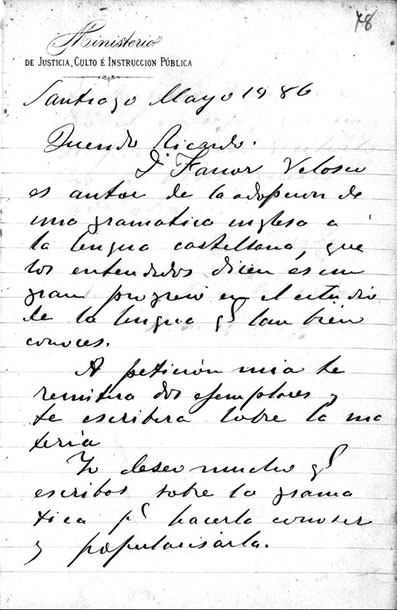 78
Ministerio
DE JUSTICIA, CULTO É INSTRUCCION PÚBLICA
Santiago Mayo 19 86
Querido Ricardo.
D. Fanor Velasco
es autor de la adopcion de
una gramatica inglesa á
la lengua castellana, que
los entendidos dicen es un
gran progreso en el estudio
de la lengua qe tan bien
conoces.
A petición mia te
remitira dos ejemplares y
te escribira sobre la ma
teria
Yo deseo mucho qe
escribas sobre la grama
tica pa hacerla conoser
y popularisarla.